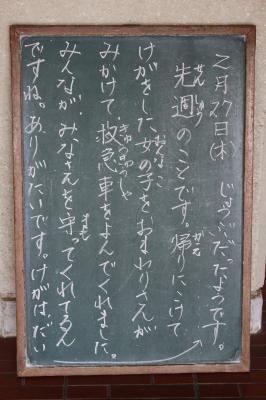 2月27日(木) じょうぶだったようです。
先週のことです。帰りにこけて
けがをした女の子をおまわりさんが
みかけて、救急車をよんでくれました。
みんなが、みなさんを守ってくれてるん
ですね。ありがたいです。けがは、だい